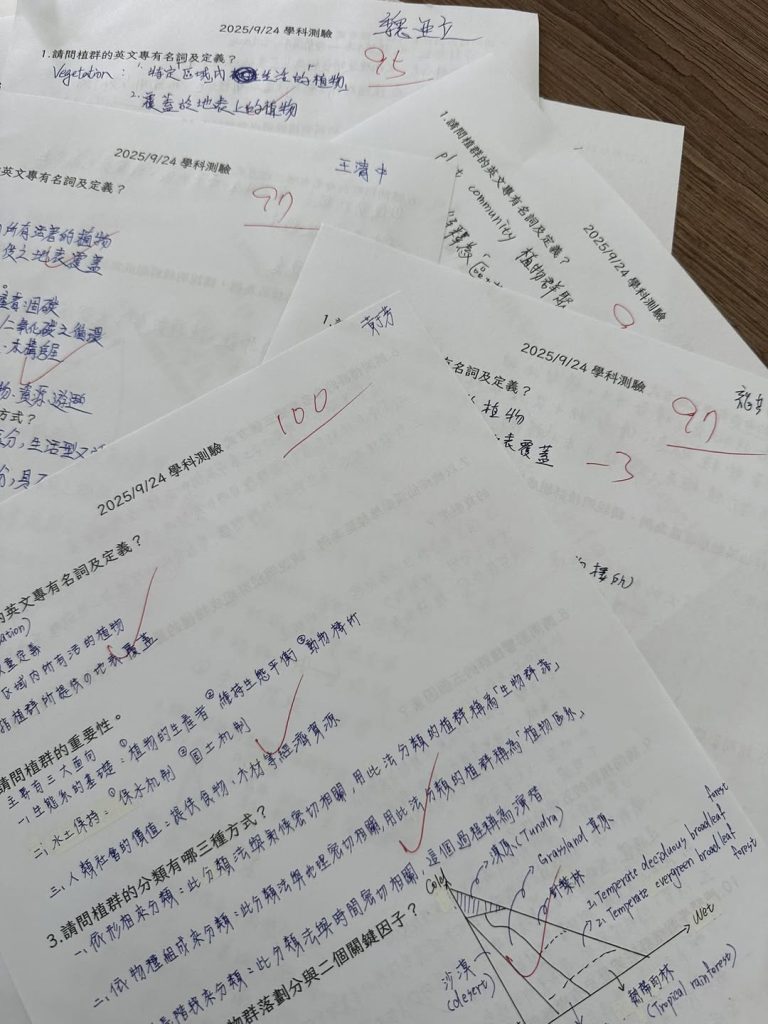 2025/9/24 學科測驗
95
1.請問植群的英文專有名詞及定義？
Vegetation：1.「特定」區域內 生活的「植物」
2.覆蓋於地表上的植物
2025/9/24 學科測驗
王清中
97
英文專有名詞及定義？
所有活著的植物
之地表覆蓋
固碳
二氧化碳之循環
方式？
生活型
1.請問植群的英文專有名詞及定義？
community 植物群
2025/9/24 學科測驗
2025/9/24 學科測驗
97
名詞及定義？
植物
表覆蓋
-3
2025/9/24 學科測驗
100
的英文專有名詞及定義？
定義
区域内所有活的植物
指植群所提供の地表覆蓋
請問植群的重要性。
主要有三大面向
一、生態系的基礎：①植物的生產者 ②維持生態平衡 ③動物棲所
二、水土保持：①保水机制 ②固土机制
三、人類社會的價值：提供食物、木材等經濟資源
3.請問植群的分類有哪三種方式？
一、依形相來分類：此分類法與氣候密切相關，用此法分類的植群稱為「生物群落」
二、依物種組成來分類：此分類法與地理密切相關，用此法分類的植群稱為「植物區系」
階段來分類：此分類法與時間密切相關，這個過程稱為演替
物群落劃分與二個關鍵因子？
Cold
凍原 (Tundra)
Grassland 草原
針葉林
1. Temperate deciduous broadleaf forest
2. Temperate evergreen broadleaf forest
Wet
沙漠
(desert)
熱帶雨林
(Tropical rainforest)